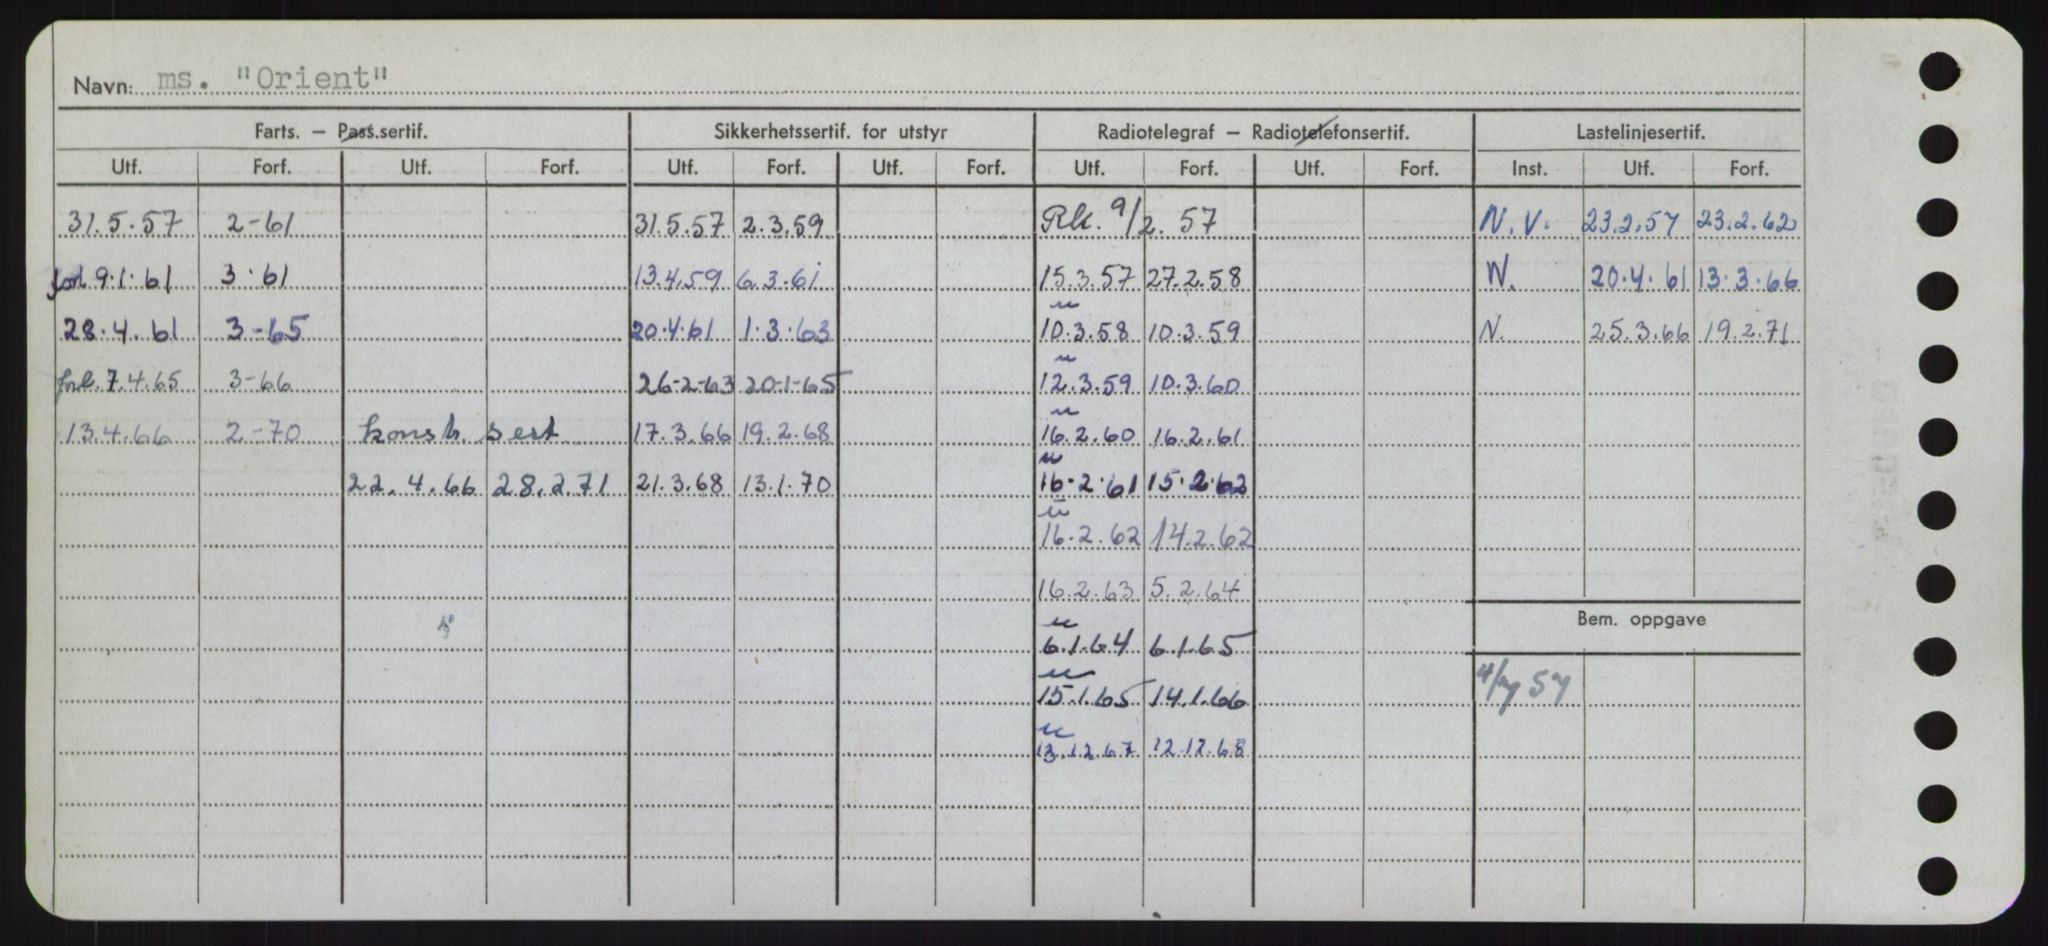 Navn: ms. "Orient"
Farts. – Pass.sertif. Sikkerhetssertif. for utstyr Radiotelegraf – Radiotelefonsertif. Lastelinjesertif.
Utf. Forf. Utf. Forf. Utf. Forf. Utf. Forf. Utf. Forf. Utf. Forf. Inst. Utf. Forf.
31.5.57 2-61 31.5.57 2.3.59 Rk. 9/2. 57 N.V. 23.2.57 23.2.62
forl 9.1.61 3.61 13.4.59 6.3.61 15.3.57 27.2.58 W. 20.4.61 13.3.66
28.4.61 3-65 20.4.61 1.3.63 10.3.58 10.3.59 N. 25.3.66 19.2.71
forl. 7.4.65 3-66 26-2-63 20-1-65 12.3.59 10.3.60
13.4.66 2-70 konstr. sert 17.3.66 19.2.68 16.2.60 16.2.61
22.4.66 28.2.71 21.3.68 13.1.70 16.2.61 15.2.62
16.2.62 14.2.62
16.2.63 5.2.64
Bem. oppgave
6.1.64 6.1.65
15.1.65 14.1.66 57
13.12.67 12.12.68